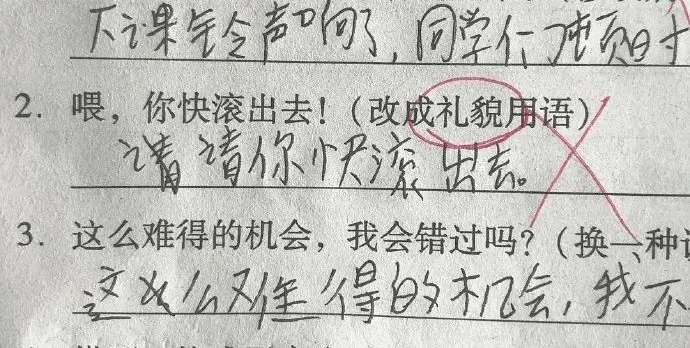 下课铃声响了，同学们顿时
2. 喂，你快滚出去！（改成礼貌用语）
请请你快滚出去。
3. 这么难得的机会，我会错过吗？（换一种
这么么难得的机会，我不